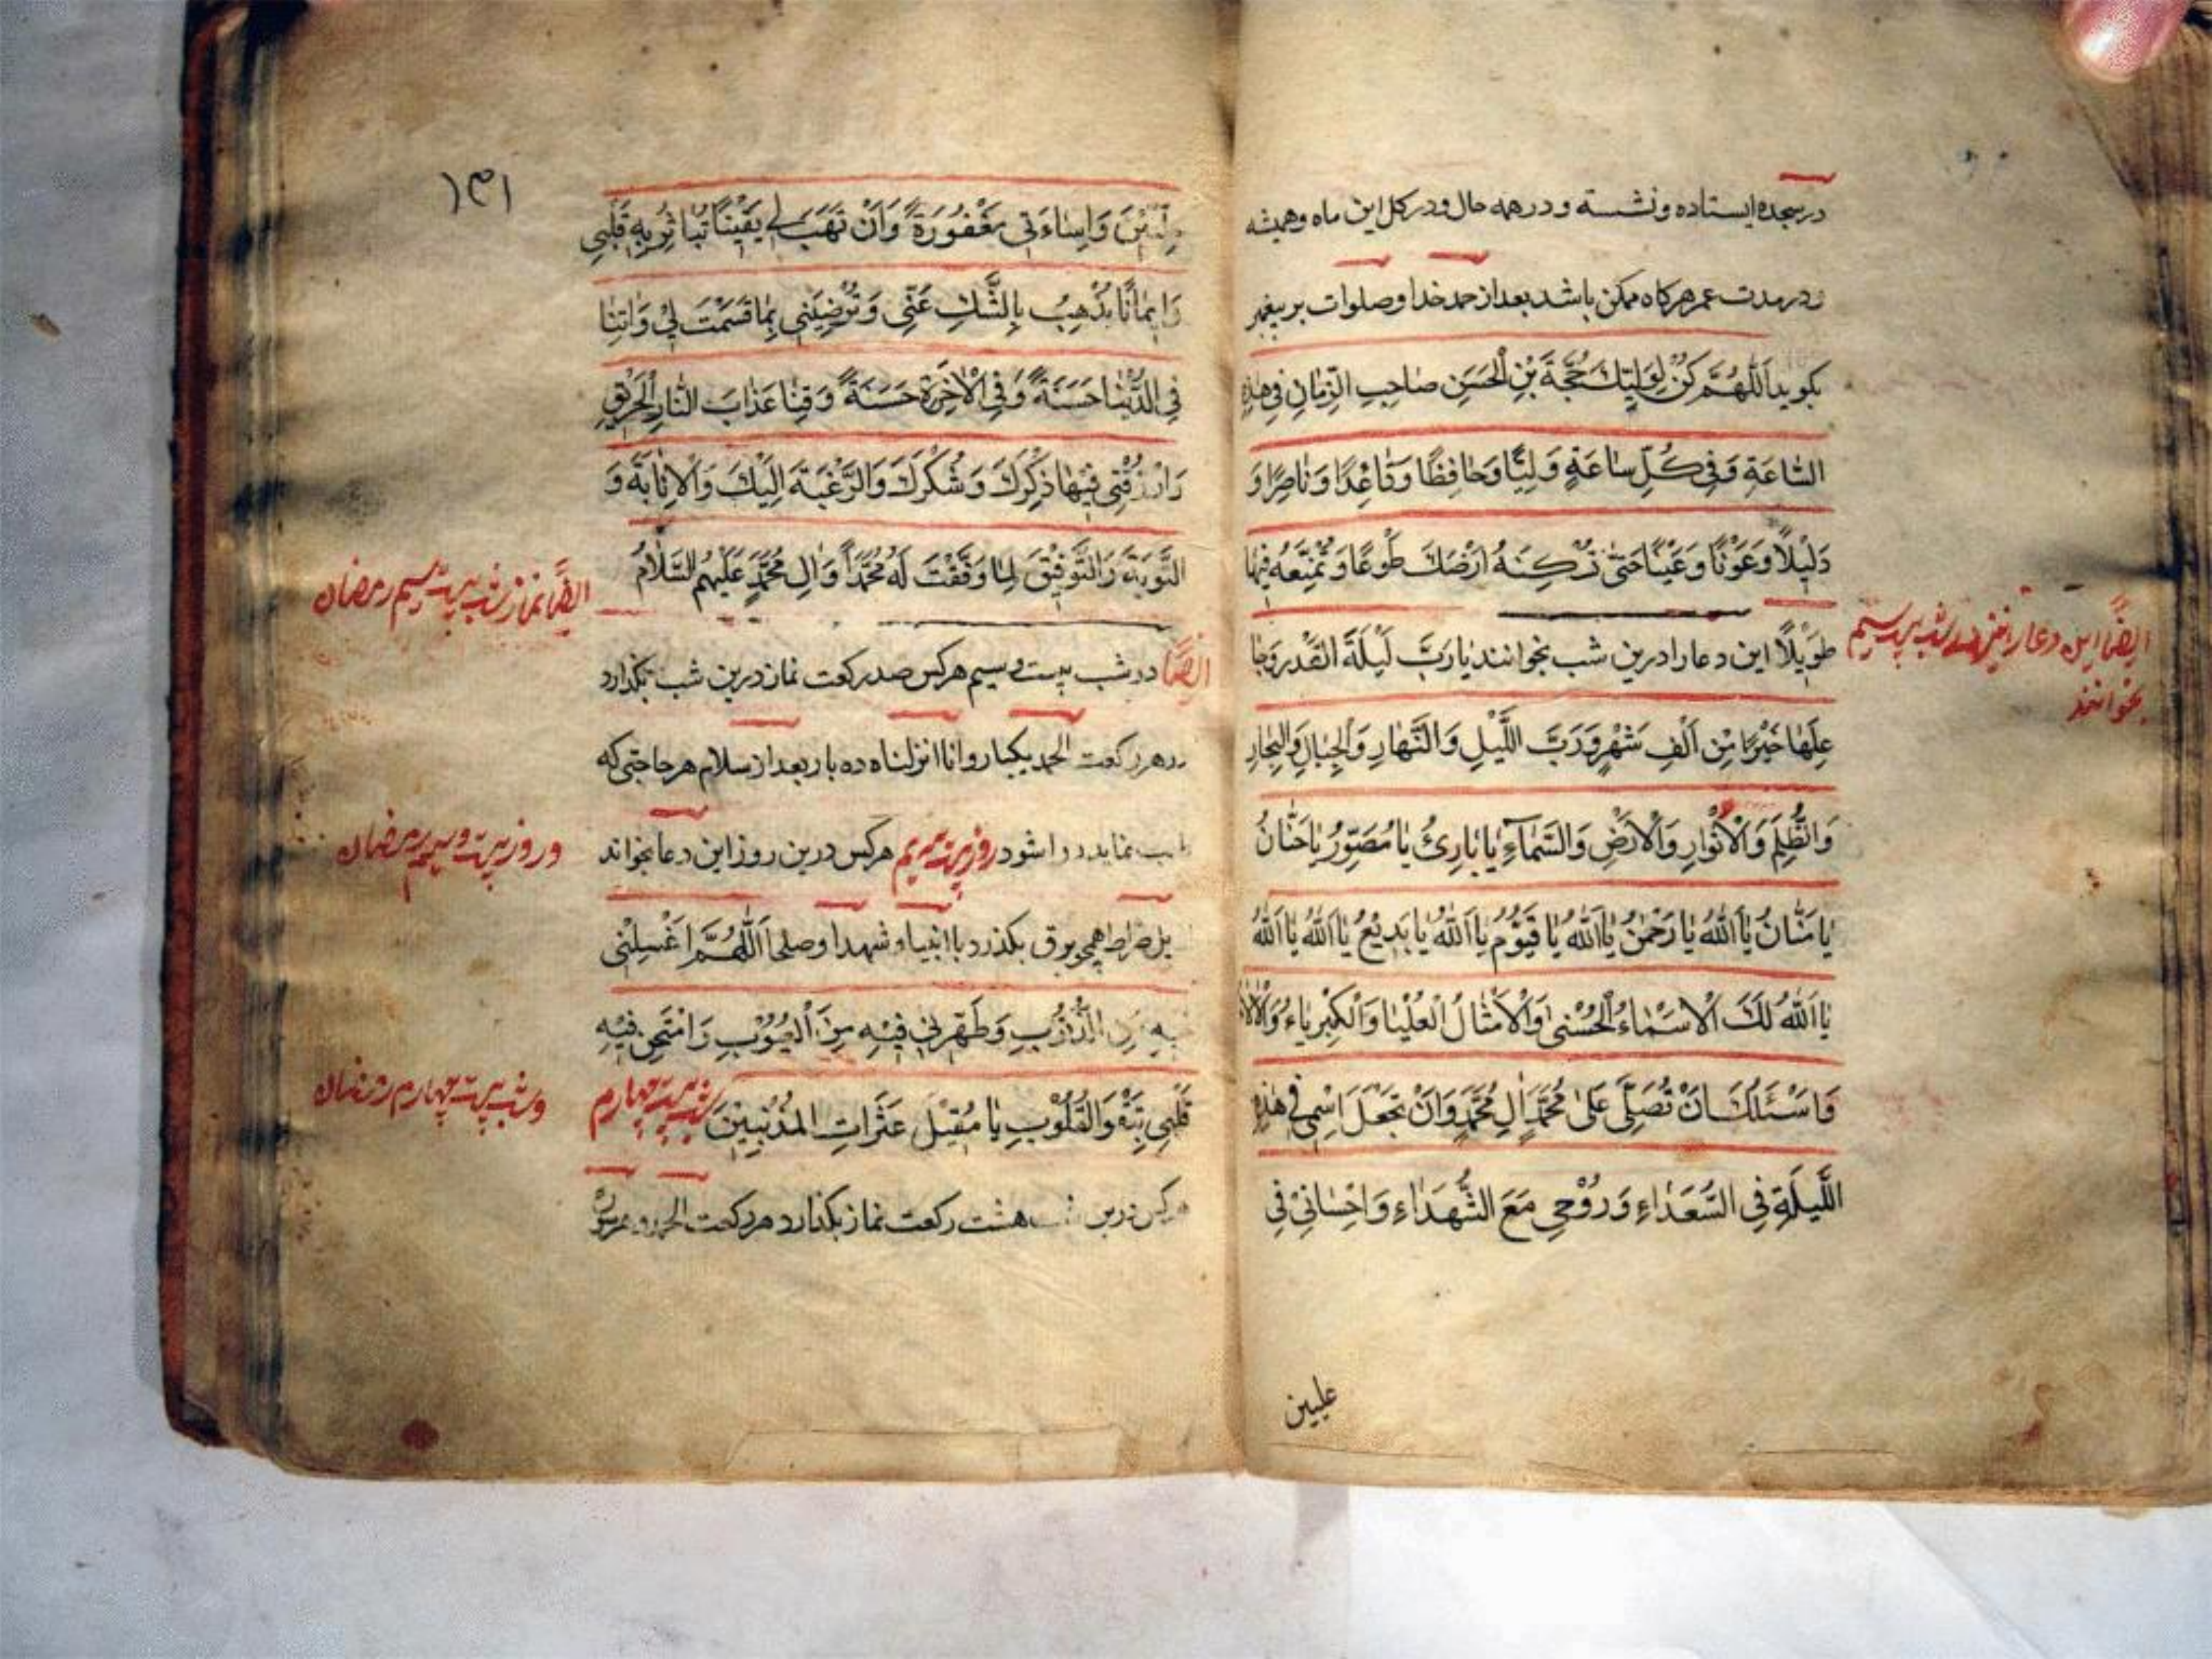 در سجده ایستاده و نشسته و در همه حال و در کل این ماه و همیشه
و در مدت عمر هر کاه ممکن باشد بعد از حمد خدا و صلوات بر پیغمبر
بکوید اَللّٰهُمَّ كُنْ لِوَلِيِّكَ حُجَّةَ بْنِ الْحَسَنِ صٰاحِبِ الزَّمٰانِ فِي هٰذِهِ
السّٰاعَةِ وَفِي كُلِّ سٰاعَةٍ وَلِيًّا وَحٰافِظًا وَقٰاعِدًا وَنٰاصِرًا وَ
دَلِيْلاً وَعَوْنًا وَعَيْنًا حَتّٰى تُسْكِنَهُ اَرْضَكَ طَوْعًا وَتُمَتِّعَهُ فِيهٰا
طَوِيْلاً این دعا را درین شب بخوانند يٰا رَبَّ لَيْلَةَ الْقَدْرِ وَجٰا
عِلَهٰا خَيْرًا مِنْ اَلْفِ شَهْرٍ وَرَبَّ اللَّيْلِ وَالنَّهٰارِ وَالْجِبٰالِ وَالْبِحٰارِ
وَالظُّلَمِ وَالْاَنْوٰارِ وَالْاَرْضِ وَالسَّمٰآءِ يٰا بٰارِئُ يٰا مُصَوِّرُ يٰا حَنّٰانُ
يٰا مَنّٰانُ يٰا اَللّٰهُ يٰا رَحْمٰنُ يٰا اَللّٰهُ يٰا قَيُّوْمُ يٰا اَللّٰهُ يٰا بَدِيْعُ يٰا اَللّٰهُ يٰا اَللّٰهُ
يٰا اَللّٰهُ لَكَ الْاَسْمٰاءُ الْحُسْنٰى وَالْاَمْثٰالُ الْعُلْيٰا وَالْكِبْرِيٰاءُ وَالْاٰلٰا
وَاَسْئَلُكَ اَنْ تُصَلِّيَ عَلٰى مُحَمَّدٍ اٰلِ مُحَمَّدٍ وَاَنْ تَجْعَلَ اسْمِي فِي هٰذِهِ
اللَّيْلَةِ فِي السُّعَدٰاءِ وَرُوْحِي مَعَ الشُّهَدٰاءِ وَاِحْسٰانِيْ فِي
علیین
ایضًا این دعا را شب بیست سیم
بخوانند
۱۳۱
عِلِّيِّيْنَ وَاِسٰاءَتِي مَغْفُوْرَةً وَاَنْ تَهَبَ لِي يَقِيْنًا تُبٰاشِرُ بِهِ قَلْبِي
وَاِيمٰانًا يُذْهِبُ بِالشَّكِّ عَنِّي وَتُرْضِيَنِي بِمٰا قَسَمْتَ لِيْ وَاٰتِنٰا
فِي الدُّنْيٰا حَسَنَةً وَفِي الْاٰخِرَةِ حَسَنَةً وَقِنٰا عَذٰابَ النّٰارِ الْحَرِيْقِ
وَارْزُقْنِي فِيْهٰا ذِكْرَكَ وَشُكْرَكَ وَالرَّغْبَةَ اِلَيْكَ وَالْاِنٰابَةَ وَ
التَّوْبَةَ وَالتَّوْفِيْقَ لِمٰا وَفَّقْتَ لَهُ مُحَمَّدًا وَاٰلِ مُحَمَّدٍ عَلَيْهِمُ السَّلٰامُ
ایضًا در شب بیست و سیم هرکس صد رکعت نماز درین شب بکذارد
در هر رکعت الحمد یکبار و انا انزلناه ده بار بعد از سلام هر حاجتی که
نماید روا شود روز بیست سیم هرکس درین روز این دعا بخواند
پل صراط همچو برق بکذرد با انبیا و شهدا و صلحا اَللّٰهُمَّ اغْسِلْنِي
فِيهِ مِنَ الذُّنُوْبِ وَطَهِّرْنِي فِيْهِ مِنَ الْعُيُوْبِ وَامْتَحِنْ فِيْهِ
قَلْبِي بِتَقْوَ الْقُلُوْبِ يٰا مُقِيْلَ عَثَرٰاتِ الْمُذْنِبِيْنَ شب بیست چهارم
هرکس درین شب هشت رکعت نماز بکذارد هر رکعت الحمد و هر سوره
ایضًا نماز شب بیست سیم رمضان
و روز بیست و سیم رمضان
و شب بیست چهارم رمضان